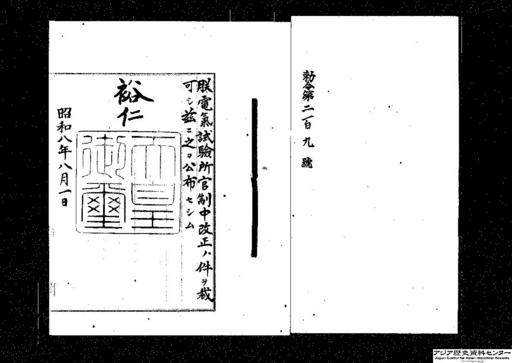 勅令第二百九號
朕電氣試驗所官制中改正ノ件ヲ裁
可シ茲ニ之ヲ公布セシム
裕仁
天皇
御璽
昭和八年八月一日
アジア歴史資料センター
Japan Center for Asian Historical Records